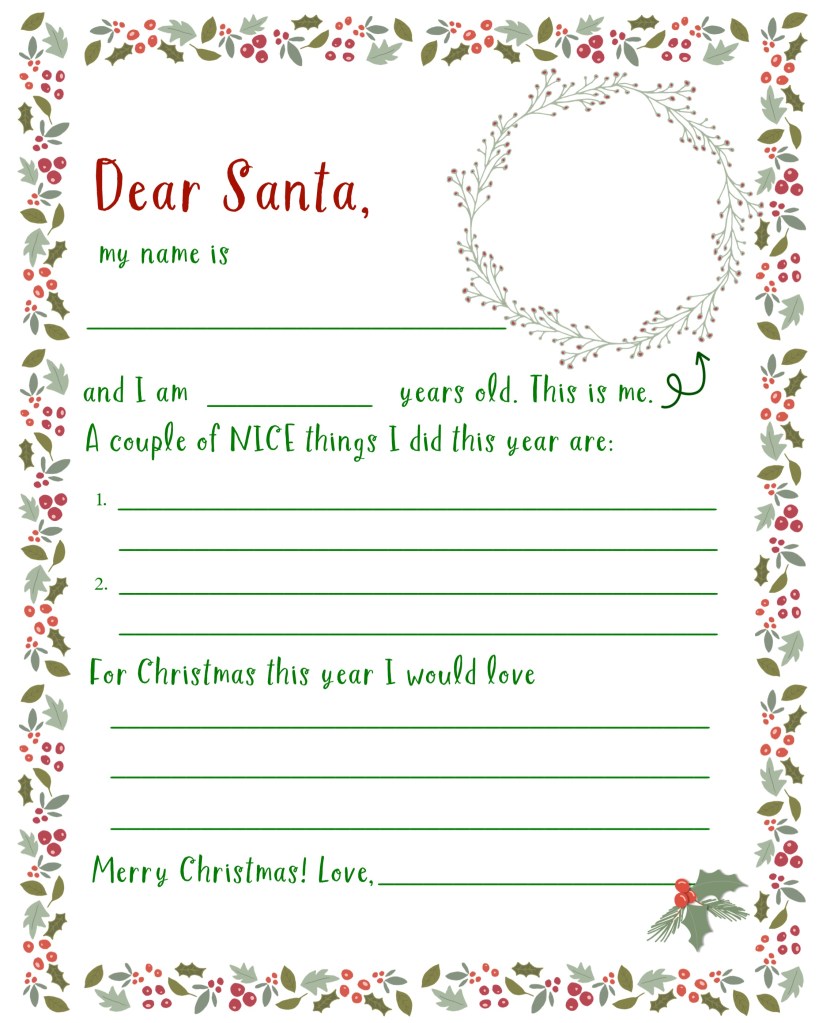 Dear Santa,
my name is
and I am years old. This is me.
A couple of NICE things I did this year are:
1.
2.
For Christmas this year I would love
Merry Christmas! Love,